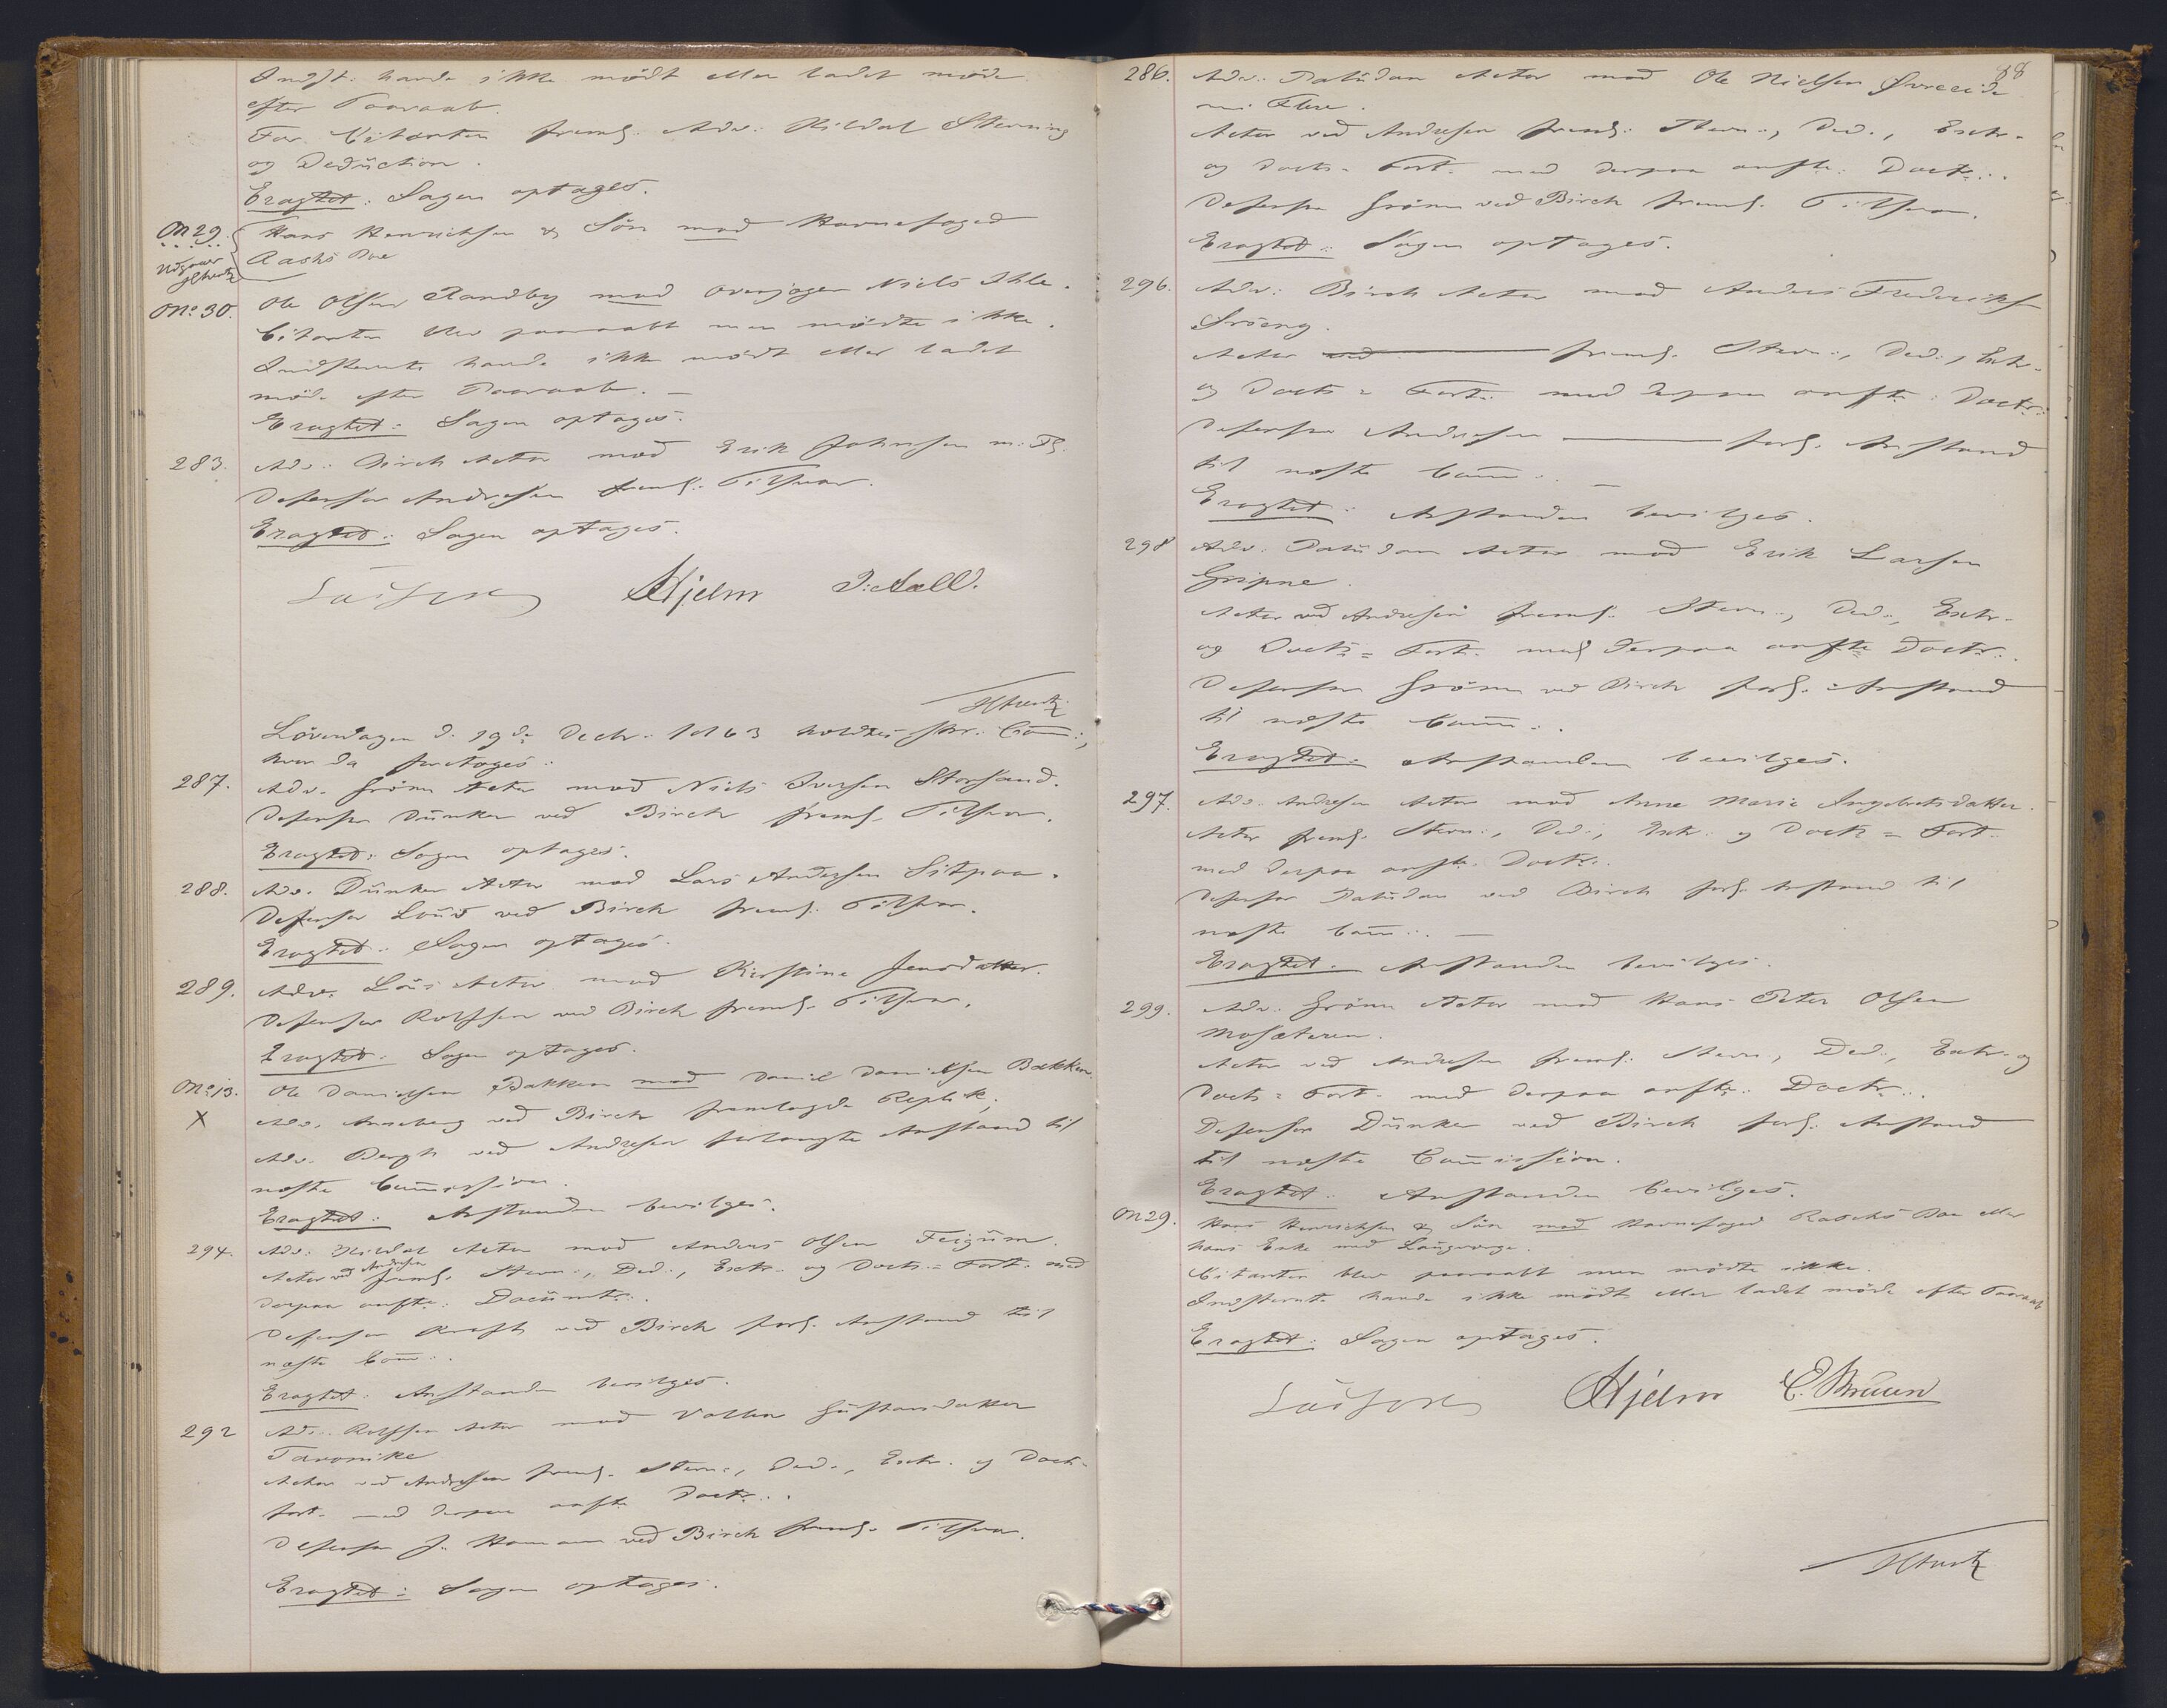 Indst. havde ikke mödt eller ladet möde
efter Paaraab.
For Citanten freml. Adv: Kildal Stevning
og Deduction.
Eragtet: Sagen optages.
No 29. Hans Henrichsen & Sön mod Havnefoged
Udgaaer Raschs Boe
No 30. Ole Olsen Randby mod Overjæger Niels Ihle.
Citanten blev paaraabt men mödte ikke.
Indstevnte havde ikke mödt eller ladet
möde efter Paaraab. —
Eragtet: Sagen optages.
283. Adv: Birch Actor mod Erik Johnsen m: Fl.
Defensor Andresen freml: Tilsvar.
Eragtet: Sagen optages.
Hjelm J: Aall.
Löverdagen d: 19de Decbr. 1863 holdtes Com:,
hvor da foretoges:
287. Adv. Grönn Actor mod Niels Iversen Storsand.
Defensor Dünker ved Birch freml. Tilsvar.
Eragtet: Sagen optages.
288. Adv. Dünker Actor mod Lars Andersen Sitpaa.
Defensor Lous ved Birch freml: Tilsvar.
Eragtet: Sagen optages.
289. Adv. Lous Actor mod Kirstine Jensdatter.
Defensor Rolfsen ved Birch freml. Tilsvar.
Eragtet: Sagen optages.
No 13. Ole Danielsen Bakken mod Daniel Danielsen Bakken.
X Adv. Anneberg ved Birch fremlagde Replik;
Adv. Bergh ved Andresen forlangte Anstand til
næste Commission.
Eragtet: Anstanden bevilges.
294. Adv: Kildal Actor mod Anders Olsen Feigum.
Actor ved Andresen freml. Stevn:, Ded:, Extr. og Doct:= Fort. med
derpaa anfte: Documtr:.
Defensor Kraft ved Birch forl. Anstand til
næste Com:.
Eragtet: Anstanden bevilges.
292 Adv: Rolfsen Actor mod Valbor Gustavsdatter
Tavonike
Actor ved Andresen freml. Stevn:, Ded:, Extr. og Doct-
fort. med derpaa anfte Doctr:.
Defensor J. Homann ved Birch freml. Tilsvar.
Eragtet: Sagen optages.
88
286. Adv: Paludan Actor mod Ole Nielsen Övreeide
m: Flere.
Actor ved Andresen freml: Stevn:, Ded:, Extr.
og Docts= Fort. med derpaa anfte: Doctr:.
Defensor Grönn ved Birch freml. Tilsvar.
Eragtet: Sagen optages.
296. Adv: Birch Actor mod Anders Frederiksen
Actor ved — freml. Stevn:, Ded:, Extr.
og Docts= Fort: med derpaa anfte: Doctr:
Defensor Andresen — forl. Anstand
til næste Com:. —
Eragtet: Anstanden bevilges.
298 Adv: Paludan Actor mod Erik Larsen
Gripne.
Actor ved Andresen freml. Stevn:, Ded:, Extr.
og Docts= Fort. med derpaa anfte Doctr:.
Defensor Grönn ved Birch forl. Anstand
til næste Com:.
Eragtet: Anstanden bevilges.
297. Adv: Andresen Actor mod Anne Marie Ingebretsdatter.
Actor freml. Stevn:, Ded:, Extr. og Docts= Fort.
med derpaa anfte. Doctr:.
Defensor Paludan ved Birch forl. Anstand til
næste Com:. —
Eragtet: Anstanden bevilges.
299. Adv: Grönn Actor mod Hans Peter Olsen
Mosæteren.
Actor ved Andresen freml: Stevn:, Ded:, Extr. og
Docts= Fort. med derpaa anfte: Doctr:.
Defensor Dünker ved Birch forl. Anstand
til næste Commission.
Eragtet: Anstanden bevilges.
No 29. Hans Henrichsen & Sön mod Havnefoged Raschs Boe eller
hans Enke med Laugværge.
Citanten blev paaraabt men mödte ikke.
Indstevnte havde ikke mödt eller ladet möde efter Paaraab
Eragtet: Sagen optages.
Hjelm E. Bruun